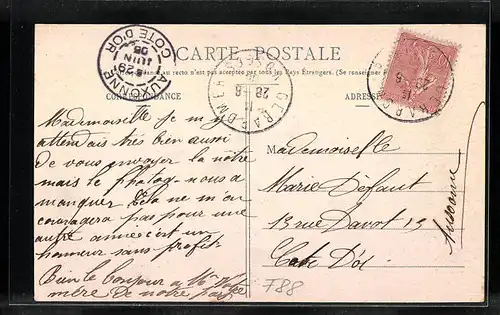 CARTE POSTALE
ance au recto n'est pas acceptée par tous les Pays Étrangers. (Se renseigner
CORRESPONDANCE
ADRESSE
AUXONNE
29
JUIN
05
COTE D'OR
GERARDMER
28
Mademoiselle je m'y
attendais très bien aussi
de vous envoyer la nôtre
mais le photog- nous a
manquer Cela ne m'en
couragera pas pour une
autre année c'est un
honneur sans profit
Bien le bonjour a
mère De notre part
Mademoiselle
Marie Défaut
13 rue Davot 13
Auxonne
Cote D'or
F88